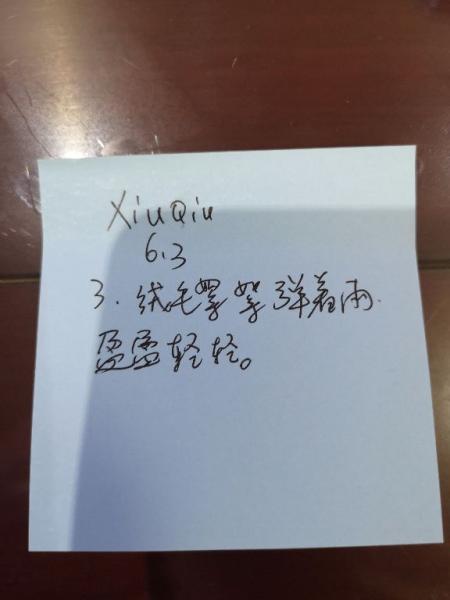 XiuQiu
6.3
3. 绒毛掌掌弹着雨.
盈盈轻轻。